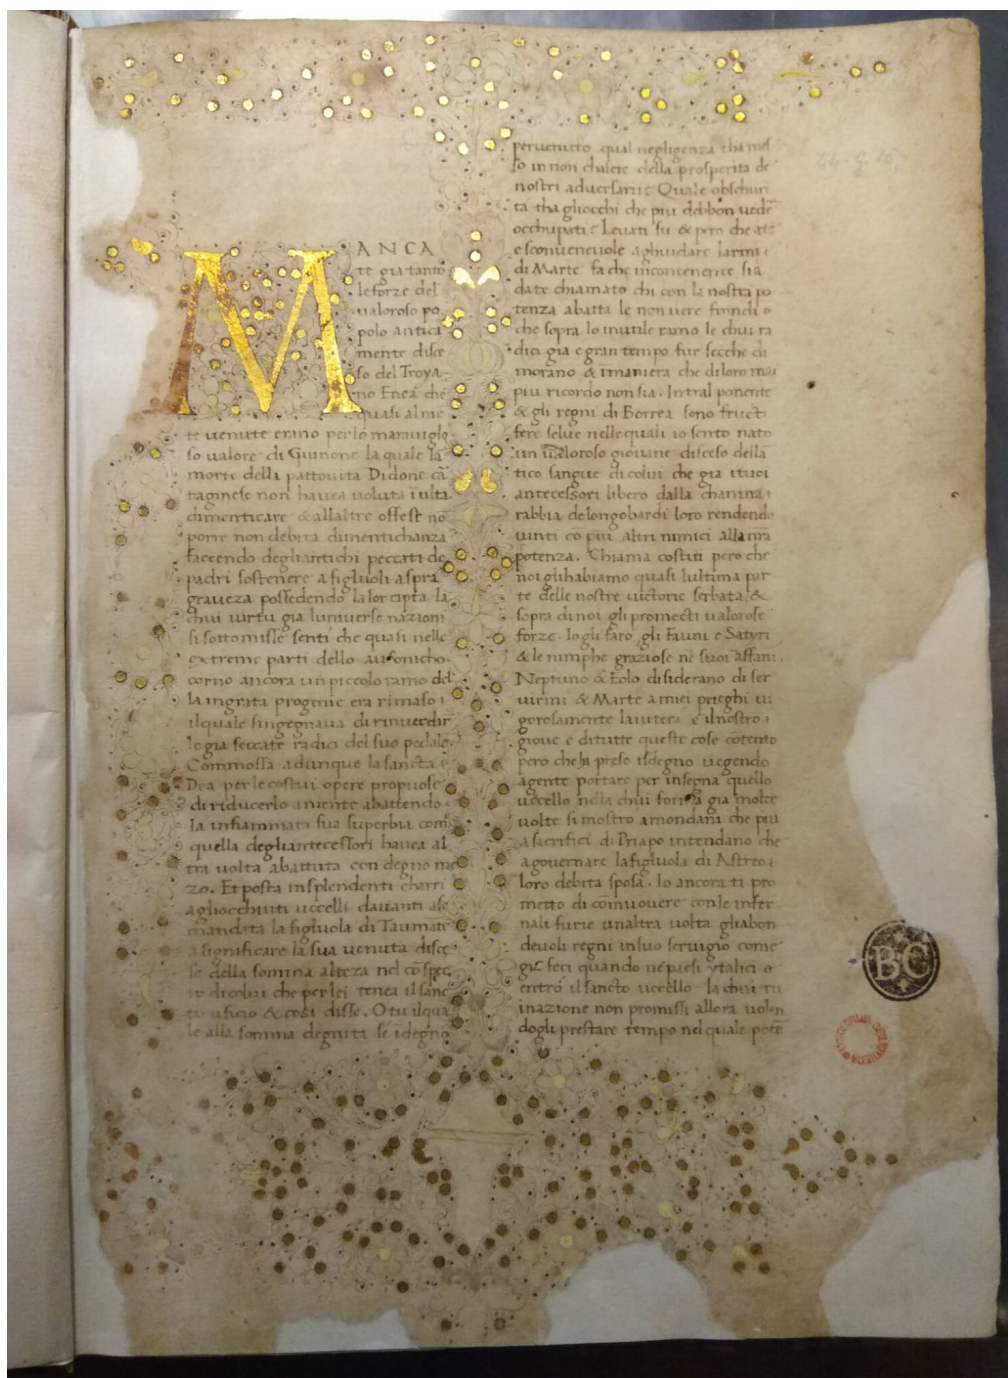 MANCA
te gia tanto
le forze del
valoroso po
polo antica
mente disce
so del Troya
no Enea che
quasi al nie
te venute erono per lo maraviglo
so valore di Giunone la quale la
morte della pattovita Didone cā
taginese non havea voluta i ulta
dimenticare & allaltre offese nō
porre non debita dimentichanza
faccendo degliantichi peccati de
padri sostenere a figluoli aspra
graveza possedendo la lor cipta la
chui virtu gia luniverse nazioni
si sottomisse senti che quasi nelle
extreme parti dello ausonicho
corno ancora un piccolo ramo del
la ingrata progenie era rimaso
il quale singegnava di rinverdir
le gia seccate radici del suo pedale
Commossa adunque la sancta
Dea per le costui opere propuose
di riducerlo a niente abattendo
la infiammata sua superbia come
quella degliantecessori havea al
tra volta abattuta con degno me
zo. Et posta insplendenti charri
a gliocchiuti uccelli davanti a se
mandata la figluola di Taumate
a significare la sua venuta disce
se della somma alteza nel cōspec
to di colui che per lei tenea il sanc
to uficio & cosi disse. O tu il qua
le alla somma degnita se idegno
pervenuto qual negligenza tha mes
so in non chalere della prosperita de
nostri adversarii? Quale obschuri
ta tha gliocchi che piu debbon vede
occhupati? Levati su & pero che a te
e sconvenevole a ghuidare larmi
di Marte fa che incontenente sia
da te chiamato chi con la nostra po
tenza abatta le non vere frondi
che sopra lo inutile runo le chui ra
dici gia e gran tempo fur secche di
morano & i maniera che di loro mai
piu ricordo non sia. Intral ponente
& gli regni di Borrea sono fruct
fere selve nelle quali io sento nato
un valoroso giovane disceso della
tico sangue di colui che gia i tuoi
antecessori libero dalla chanina
rabbia de longobardi loro rendendo
vinti cō piu altri nimici alla nrā
potenza. Chiama costui pero che
noi gli habiamo quasi lultima par
te delle nostre victorie serbata &
sopra di noi gli promecti valorose
forze. Io gli faro gli Fauni e Satyri
& le nimphe graziose ne suoi affani.
Neptuno & Eolo disiderano di ser
virmi & Marte a miei prieghi vi
gorosamente lauitera e il nostro
giove e di tutte queste cose cōtento
pero che ha preso isdegno vegendo
a gente portare per insegna quello
uccello nella chui forma gia molte
volte si mostro a mondani che piu
a sacrifici di Priapo intendano che
a governare la figluola di Astreo
loro debita sposa. Io ancora ti pro
metto di coinuovere con le infer
nali furie unaltra volta gliabon
devoli regni in suo servigio come
gia feci quando ne paesi ytalici
entro il sancto uccello. la chui ru
inazione non promissi allora volen
dogli prestare tempo nel quale pote
BC